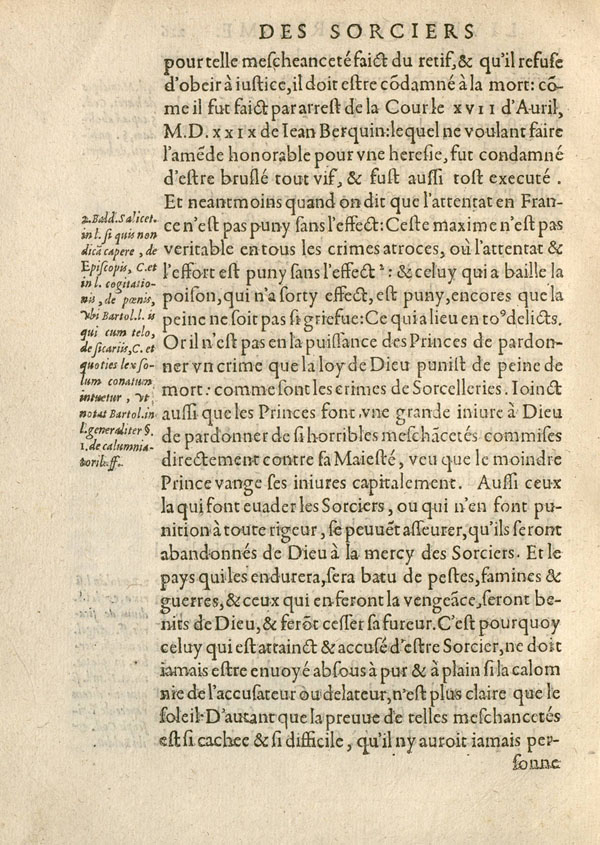 DES SORCIERS
pour telle meſcheanceté faict du retif, & qu'il refuse
d'obeir à iustice, il doit eſtre cōdamné à la mort: cō-
me il fut faict par arreſt de la Cour le XVII d'Auril,
M.D. XXIX de Iean Berquin: lequel ne voulant faire
l'amēde honorable pour vne hereſie, fut condamné
d'eſtre bruſlé tout vif, & fuſt auſſi toſt executé.
Et neantmoins quand on dit que l'attentat en Fran-
ce n'eſt pas puny ſans l'effect: Ceſte maxime n'eſt pas
veritable en tous les crimes atroces, où l'attentat &
l'effort eſt puny ſans l'effect²: & celuy qui a baille la
poiſon, qui n'a ſorty effect, eſt puny, encores que la
peine ne ſoit pas ſi griefue: Ce qui a lieu en toꝰ delicts.
Or il n'eſt pas en la puiſſance des Princes de pardon-
ner vn crime que la loy de Dieu puniſt de peine de
mort: comme ſont les crimes de Sorcelleries. Ioinct
auſſi que les Princes font vne grande iniure à Dieu
de pardonner de ſi horribles meſchācetés commiſes
directement contre ſa Maieſté, veu que le moindre
Prince vange ſes iniures capitalement. Auſſi ceux
la qui font euader les Sorciers, ou qui n'en font pu-
nition à toute rigeur, ſe peuuēt aſſeurer, qu'ils ſeront
abandonnés de Dieu à la mercy des Sorciers. Et le
pays qui les endurera, ſera batu de peſtes, famines &
guerres, & ceux qui en feront la vengeāce, ſeront be-
nits de Dieu, & ferōt ceſſer ſa fureur. C'eſt pourquoy
celuy qui eſt attainct & accuſé d'eſtre Sorcier, ne doit
iamais eſtre enuoyé abſous à pur & à plain ſi la calom
nie de l'accuſateur ou delateur, n'eſt plus claire que le
ſoleil. D'autant que la preuue de telles meſchancetés
eſt ſi cachee & ſi difficile, qu'il ny auroit iamais per-
ſonne
2. Bald. Salicet.
in l. ſi quis non
dicā capere, de
Epiſcopis, C. et
in l. cogitatio-
nis, de pœnis,
vbi Bartol. l. is
qui cum telo,
de ſicariis, C. et
quoties lex ſo-
lum conatum
intuetur, vt
notat Bartol. in
l. generaliter §.
1. de calumnia-
torib. ff.